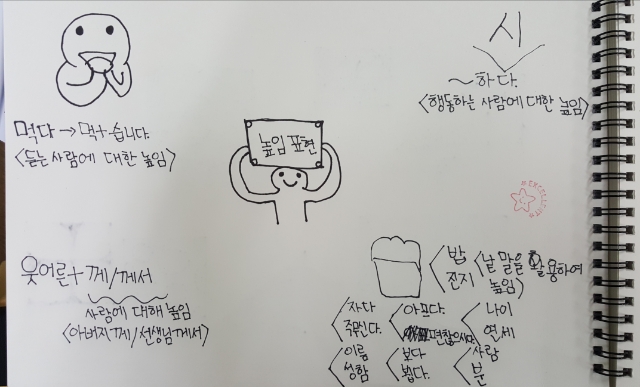 먹다 → 먹+습니다.
<듣는 사람에 대한 높임>
시
~하다.
<행동하는 사람에 대한 높임>
높임 표현
EXCELLENT
웃어른+께/께서
사람에 대해 높임
<아버지께/선생님께서>
밥
진지
<낱말을 활용하여
높임>
자다
주무신다.
아프다.
편찮으시다
나이
연세
이름
성함
보다
뵙다.
사람
분